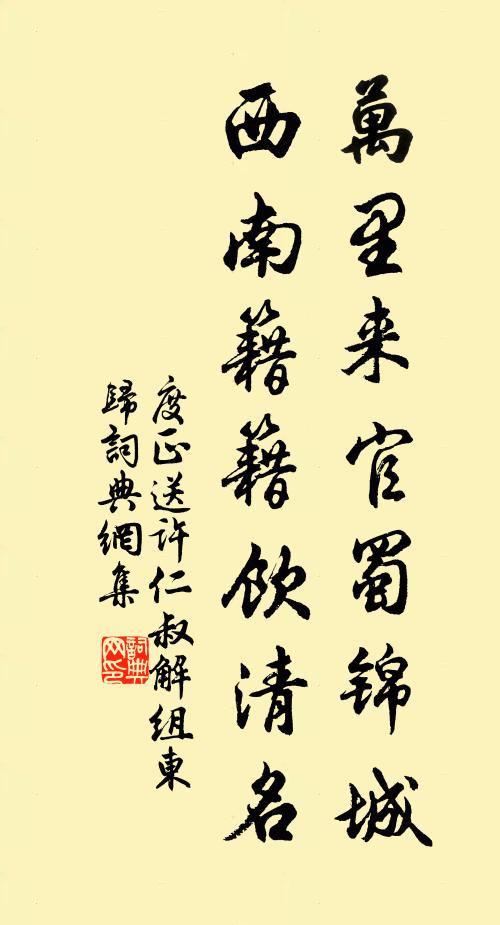 萬里来官蜀锦城
西南籍籍飲清名
度正送許仁叔解組東
歸詞典網集
詞典网印